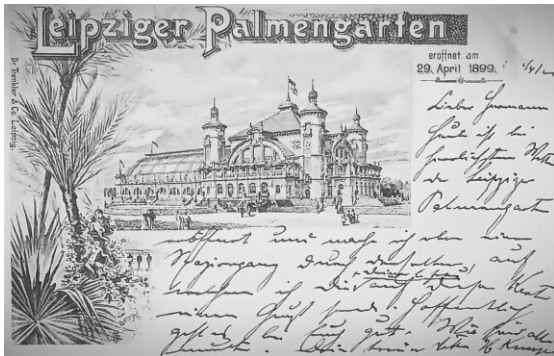 Leipziger Palmengarten
eröffnet am
29. April 1899.
Dr. Trenkler & Co. Leipzig.
Lieber Hermann
Heute ist bei
herrlichstem Wetter
der Leipziger
Palmengarten
eröffnet und mach ich eben einen
Spaziergang durch denselben, auf
welchem ich Dir auf dieser Karte
einen Gruß sende. Hoffentlich
geht es bei Euch gut. Wir sind alle
munter.